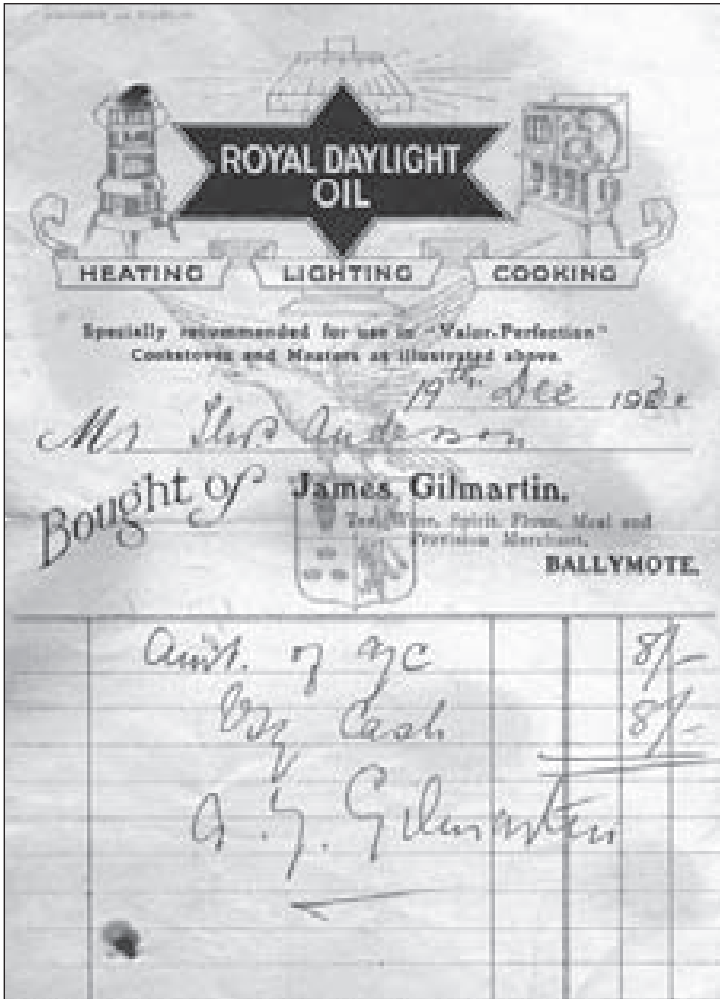 ROYAL DAYLIGHT
OIL
HEATING LIGHTING COOKING
Specially recommended for use in "Valor-Perfection"
Cookstoves and Heaters as illustrated above.
19th. Dec 19
Mr Thos Anderson
Bought of James Gilmartin,
Tea, Wine, Spirit, Flour, Meal and
Provision Merchant,
BALLYMOTE.
Amt. of a/c 8/-
By Cash 8/-
Gilmartin